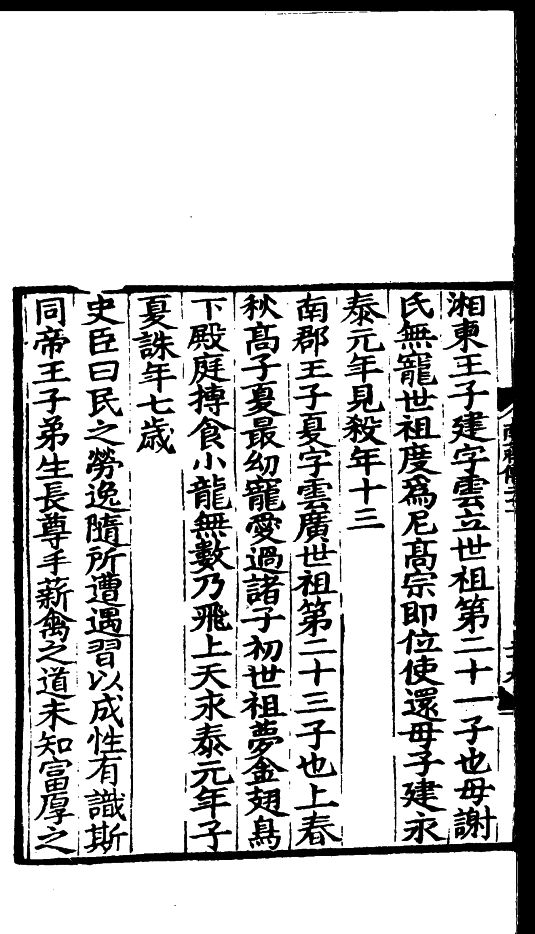 湘東王子建字雲立世祖第二十一子也母謝
氏無寵世祖度爲尼髙宗即位使還母子建永
泰元年見殺年十三
南郡王子夏字雲廣世祖第二十三子也上春
秋髙子夏最幼寵愛過諸子初世祖夢金翅鳥
下殿庭搏食小龍無數乃飛上天永泰元年子
夏誅年七歲
史臣曰民之勞逸隨所遭遇習以成性有識斯
同帝王子弟生長尊手薪禽之道未知富厚之